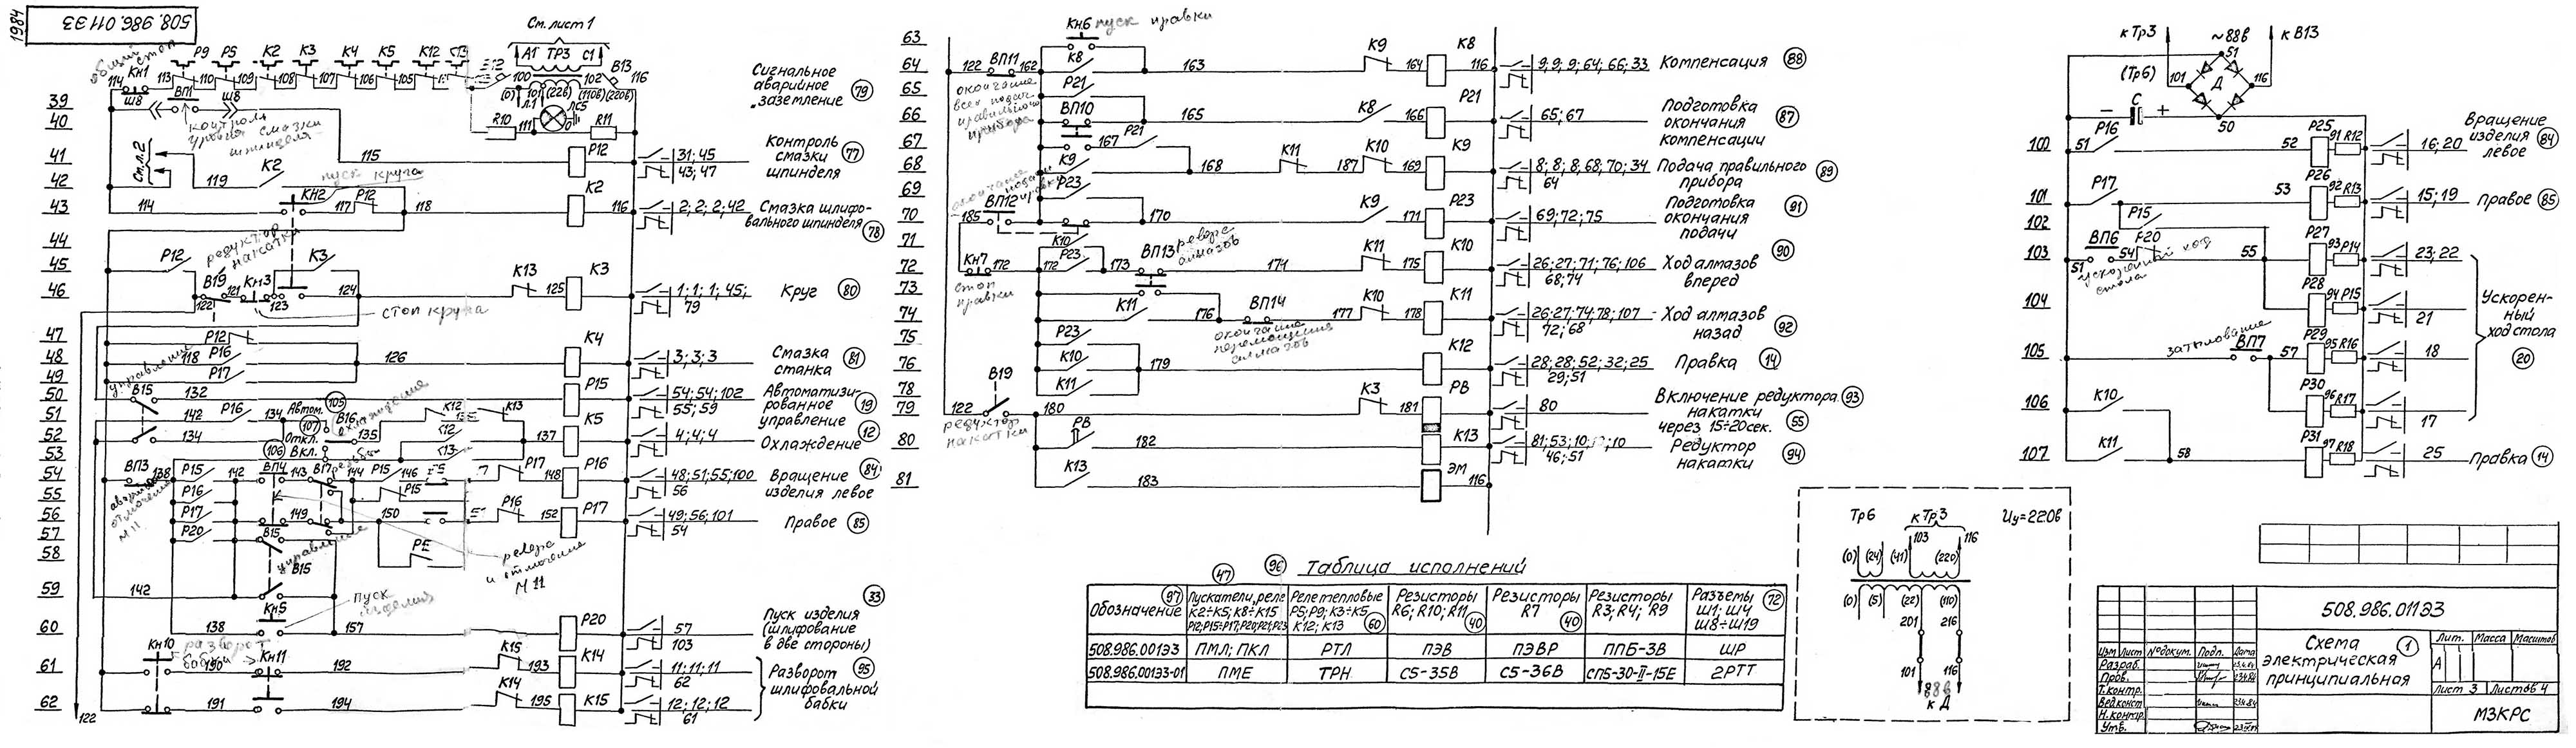 1984
508.986.011ЭЗ
общий стоп
Кн1
Р9 Р5 К2 К3 К4 К5 К12
См. лист 1
А1 ТР3 С1
В13
114 113 110 109 108 107 106 105 100 102 116
(0) 101 (22В) (110В) (220В)
Л.1 ЛС5
R10 111 0 R11
Сигнальное
аварийное
заземление 79
39
40
Ш8 ВП1 Ш8
контроль
уровня смазки
шпинделя
41
См.л.2
115 Р12 31; 45
43; 47
Контроль
смазки
шпинделя 77
42
119 К2
пуск круга
43
114 КН2 117 Р12 118 К2 116 2; 2; 2; 42
Смазка шлифо-
вального шпинделя 78
44
редуктор
накатки
45
Р12 К3
46
В19 121 Кн3 122 123 124 К13 125 К3 1; 1; 1; 45;
79
Круг 80
стоп круга
47
Р12
48
118 Р16 126 К4 3; 3; 3
Смазка
станка 81
49
Р17
управление
50
В15 132 Р15 54; 54; 102
55; 59
Автоматизи-
рованное
управление 19
51
142 Р16 134 Автом. 105 В16 охлаждение К12 К13
52
134 107 Откл. 135 К12 137 К5 4; 4; 4
Охлаждение 12
53
106 Вкл. К13
54
ВП3 138 Р15 142 ВП4 143 В17 144 Р15 146 Р17 148 Р16 48; 51; 55; 100
56
Вращение 84
изделия левое
55
Р16 Р15
56
Р17 149 150 Р16 152 Р17 49; 56; 101
54
Правое 85
М 11
57
Р20 В15
управление
58
реверс
и отключение
М 11
59
142 В15
Кн5
пуск
изделия
60
138 157 Р20 57
103
33
Пуск изделия
(шлифование
в две стороны)
разворот
бабки
61
Кн10 190 Кн11 192 К15 193 К14 11; 11; 11
62
Разворот 95
шлифовальной
бабки
62
191 194 К14 195 К15 12; 12; 12
61
122
63
Кн6 пуск правки
64
122 ВП11 162 К8 163 К9 164 К8 116 9; 9; 9; 64; 66; 33
Компенсация 88
65
Р21
66
ВП10 165 К8 166 Р21 65; 67
Подготовка
окончания
компенсации 87
67
167 Р21
68
К9 168 К11 187 К10 169 К9 8; 8; 8; 68; 70; 34
64
Подача правильного
прибора 89
69
Р23
70
185 ВП12 170 К9 171 Р23 69; 72; 75
Подготовка
окончания
подачи 91
71
К10
72
Кн7 172 172 Р23 173 ВП13 реверс алмазов 174 К11 175 К10 26; 27; 71; 76; 106
68; 74
Ход алмазов
вперед 90
стоп
правки
73
74
К11 176 ВП14 177 К10 178 К11 26; 27; 74; 78; 107
72; 68
Ход алмазов
назад 92
окончание
перемещения
алмазов
75
Р23
76
К10 179 К12 28; 28; 52; 32; 25
29; 51
Правка 14
78
К11
79
122 В19 180 К3 181 РВ 80
Включение редуктора 93
накатки
через 15÷20сек. 55
редуктор
накатки
80
РВ 182 К13 81; 53; 10; 10; 10
46; 51
Редуктор
накатки 94
81
К13 183 ЭМ 116
96 Таблица исполнений
47
97 Обозначение
Пускатели, реле К2÷К5; К8÷К15 Р12; Р15÷Р17; Р20; Р21; Р23
Реле тепловые Р5; Р9; К3÷К5 К12; К13 60
Резисторы R6; R10; R11 40
Резисторы R7 40
Резисторы R3; R4; R9
Разъемы 72 Ш1; Ш4 Ш8÷Ш19
508.986.001ЭЗ ПМЛ; ПКЛ РТЛ ПЭВ ПЭВР ППБ-3В ШР
508.986.001ЭЗ-01 ПМЕ ТРН С5-35В С5-36В СП5-30-II-15Е 2РТТ
Тр6 к Тр3 Uу=220В
103 116
(0) (24) (41) (220)
(0) (5) (22) (110)
201 216
101 116
88В
к Д
к Тр3 ~88В к В13
51
(Тр6) 101 Д 116
С
− +
50
100
51 Р16 52 Р25 91 R12 16; 20
Вращение
изделия
левое 84
101
Р17 53 Р26 92 R13 15; 19
Правое 85
102
Р15
103
ВП6 51 54 Р20 55 Р27 93 Р14 23; 22
ускоренный ход
стола
104
Р28 94 Р15 21
Ускорен-
ный
ход стола
20
105
затылование
ВП7 57 Р29 95 R16 18
106
К10 Р30 96 R17 17
107
К11 58 Р31 97 R18 25
Правка 14
508.986.011ЭЗ
Схема 1
электрическая
принципиальная
Лит. Масса Масштаб
А
Изм Лист №докум. Подп. Дата
Разраб.
Пров.
Т.контр.
Н.контр.
Утв.
Лист 3 Листов 4
МЗКРС